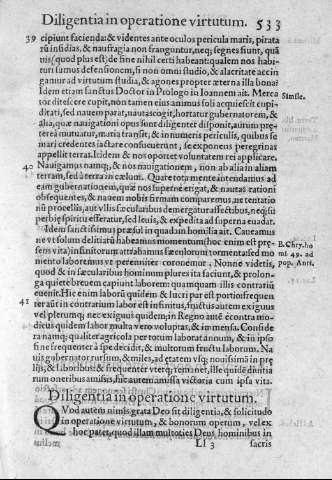 Diligentia in operatione virtutum. 533
39 cipiunt facienda: & videntes ante oculos pericula maris, pirata
rū insidias, & naufragia non franguntur, neq; segnes fiunt, quā
uis (quod plus est) de fine nihil certi habeant: qualem nos habi-
turi sumus defensionem, si non omni studio, & alacritate accin
gamur ad virtutum studia, & agones propter æterna illa bona?
Idem etiam sanctus Doctor in Prologo in Ioannem ait. Merca
tor ditescere cupit, non tamen eius animus soli acquiescit cupi-
ditati, sed nauem parat, nautas cogit, hortatur gubernatorem, &
alia, quæ nauigationi opus sunt diligenter disponit, aurum præ-
terea mutuatur, maria transit, & in numeris periculis, quibus se
mari credentes iactare consueuerunt, se exponens peregrinas
appellit terras. Itidem & nos oportet voluntatem rei applicare.
Simile.
40 Nauigamus namq; & nos nauigationem, non ab alia in aliam
terram, sed à terra in cælum. Quare tota mente intendamus ad
eam gubernationem, quæ nos supernè erigat, & nautas rationi
obsequentes, & nauem nobis firmam comparemus, ne tentatio
nū procellis, aut vllis sæcularibus demergatur affectibus, néq; su
perbię spiritu efferatur, sed leuis, & expedita ad superna euadat.
Idem sanctissimus præsul in quadam homilia ait. Caueamus
ne vt solum delitiatū habeamus momentum (hoc enim est præ-
sens vita) in finitorum attrahimus sæculorum tormenta: sed mo
mento laboremus vt perenniter coronemur. Nonnè videtis,
quod & in sæcularibus hominum plures ita faciunt, & prolon-
ga quiete breuem capiunt laborem: quamquam illis contrariū
euenit. Hic enim laborū quidem & lucri par est portio: frequen
B. Chry. ho
mi 49. ad
pop. Anti.
41 ter aūt in contrarium labor est infinitus, fructus autem exiguus
vel plerumq; nec exiguus: quidem, in Regno autē è contra mo-
dicus quidem labor multa vero voluptas, & immensa. Conside
ra namq; qualiter agricola per totum laborat annum, & in ipso
fine frequenter à spe decidit, & multorum fructu laborum. Na
uis gubernator rursum, & miles, ad ætatem vsq; nouissimā in præ
lijs, & laboribus: & frequenter vterq; remanet, ille quidē diuitia
rum oneribus amissis, hic autem amissa victoria cum ipsa vita.
Diligentia in operatione virtutum.
QVod autem nimis grata Deo sit diligentia, & solicitudo
in operatione virtutum, & bonorum operum, vel ex
hoc patet, quod illam multoties Deus hominibus in
Ll 3 sacris